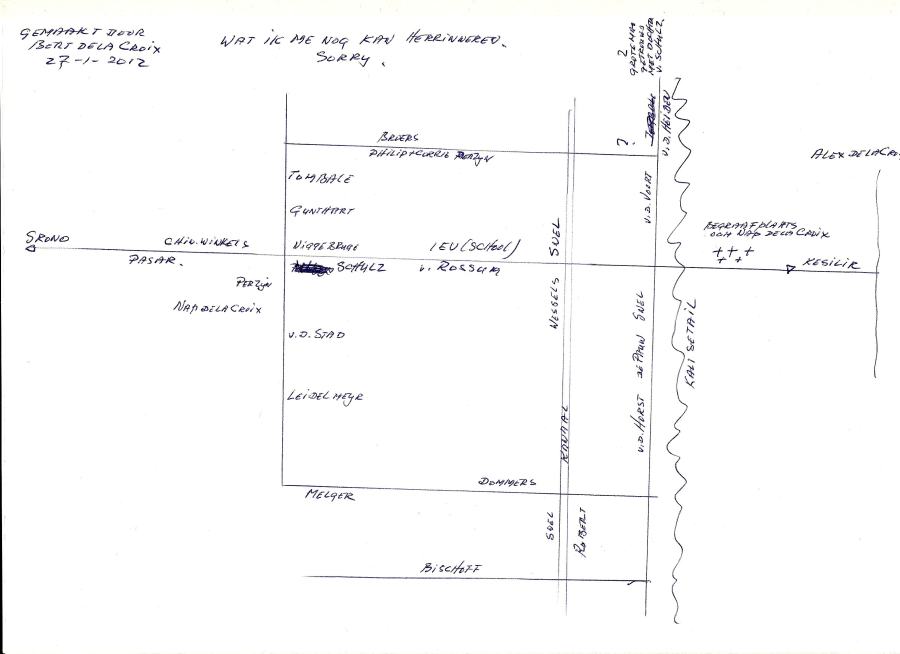 GEMAAKT DOOR
BERT DELA CROIX
27-1-2012
WAT IK ME NOG KAN HERRINNEREN.
SORRY.
?
GROTE MA
GETROUWD
MET DEWA
V. SCHULZ.
?
V.D. HEIDEN
BROERS
PHILIP + CORRIE PERZYN
ALEX DELACROI
TOMBALE
V.D. VOORT
GUNTHART
SNEL
BEGRAAFPLAATS
OOM NAP DELA CROIX
SRONO
CHIN. WINKELS
NIGGEBRUGE
IEV (SCHOOL)
PASAR.
SCHULZ
V. ROSSUM
KESILIR
PERZYN
NAP DELA CROIX
WESSELS
SNEL
V.D. STAD
DE PAUW
KALI SETAIL
LEIDELMEYR
V.D. HORST
KANAAL
DOMMERS
MELGER
SNEL
ROBERT
BISCHOFF